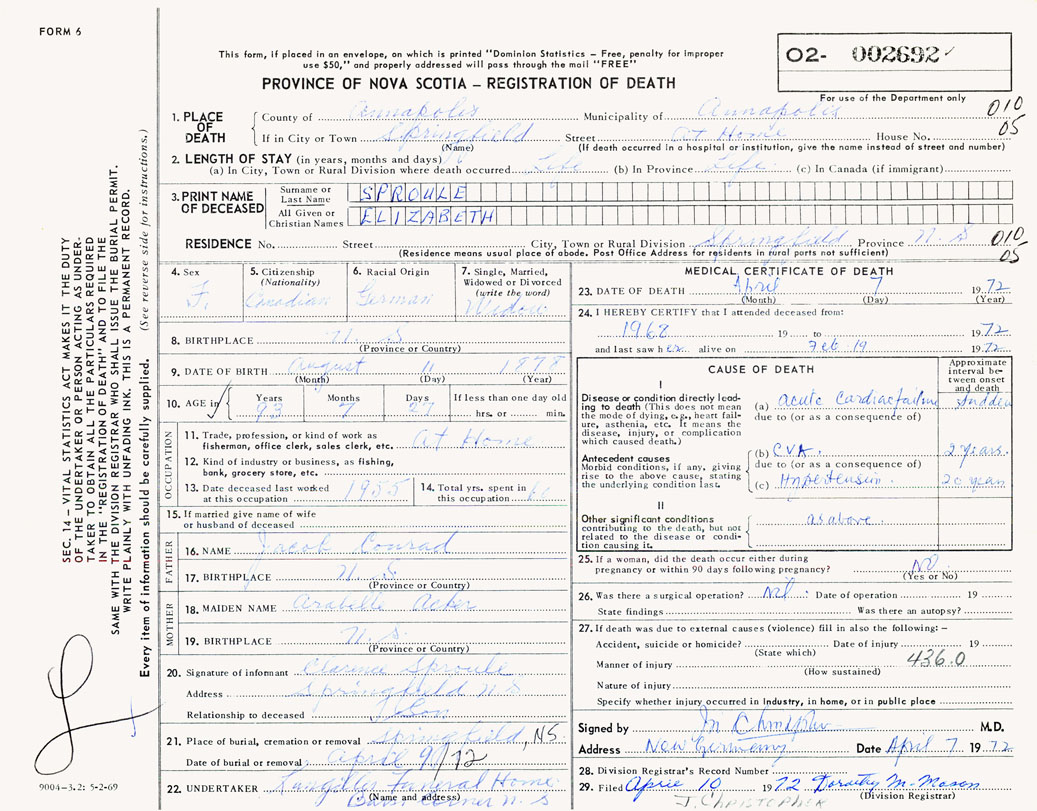 FORM 6
This form, if placed in an envelope, on which is printed "Dominion Statistics – Free, penalty for improper
use $50," and properly addressed will pass through the mail "FREE"
PROVINCE OF NOVA SCOTIA – REGISTRATION OF DEATH
O2- 002692
For use of the Department only
1. PLACE OF DEATH
County of Annapolis Municipality of Annapolis 010
If in City or Town Springfield Street At Home House No. 05
(Name) (If death occurred in a hospital or institution, give the name instead of street and number)
2. LENGTH OF STAY (in years, months and days)
(a) In City, Town or Rural Division where death occurred Life (b) In Province Life (c) In Canada (if immigrant)
3. PRINT NAME OF DECEASED
Surname or Last Name SPROULE
All Given or Christian Names ELIZABETH
RESIDENCE No. Street City, Town or Rural Division Springfield Province N. S 010
(Residence means usual place of abode. Post Office Address for residents in rural parts not sufficient) 05
4. Sex F.
5. Citizenship (Nationality) Canadian
6. Racial Origin German
7. Single, Married, Widowed or Divorced (write the word) Widow
8. BIRTHPLACE N. S
(Province or Country)
9. DATE OF BIRTH August 11 1878
(Month) (Day) (Year)
10. AGE in Years 93 Months 7 Days 27 If less than one day old hrs. or min.
OCCUPATION
11. Trade, profession, or kind of work as
fisherman, office clerk, sales clerk, etc. At Home
12. Kind of industry or business, as fishing,
bank, grocery store, etc.
13. Date deceased last worked at this occupation 1955
14. Total yrs. spent in this occupation 60
15. If married give name of wife
or husband of deceased
FATHER
16. NAME Jacob Conrad
17. BIRTHPLACE N. S
(Province or Country)
MOTHER
18. MAIDEN NAME Arabelle Acker
19. BIRTHPLACE N. S.
(Province or Country)
20. Signature of informant Clarence Sproule
Address Springfield N S
Relationship to deceased Son
21. Place of burial, cremation or removal Springfield, NS.
Date of burial or removal April 9/72
22. UNDERTAKER Funeral Home
(Name and address) N. S
MEDICAL CERTIFICATE OF DEATH
23. DATE OF DEATH April 7 1972
(Month) (Day) (Year)
24. I HEREBY CERTIFY that I attended deceased from:
1968 19 to 1972
and last saw her alive on Feb. 19 1972
CAUSE OF DEATH
Approximate interval between onset and death
I
Disease or condition directly leading to death (This does not
mean the mode of dying, e.g., heart failure, asthenia, etc. It means the
disease, injury, or complication
which caused death.)
(a) Acute Cardiac failure sudden
due to (or as a consequence of)
Antecedent causes
Morbid conditions, if any, giving
rise to the above cause, stating
the underlying condition last.
(b) CVA. 2 years.
due to (or as a consequence of)
(c) Hypertension. 20 years
II
Other significant conditions
contributing to the death, but not
related to the disease or condition causing it.
as above.
25. If a woman, did the death occur either during
pregnancy or within 90 days following pregnancy? NO
(Yes or No)
26. Was there a surgical operation? Nil Date of operation 19
State findings Was there an autopsy?
27. If death was due to external causes (violence) fill in also the following: –
Accident, suicide or homicide? Date of injury 19
(State which)
Manner of injury 436.0
(How sustained)
Nature of injury
Specify whether injury occurred in Industry, in home, or in public place
Signed by M.D.
Address New Germany Date April 7 1972
28. Division Registrar's Record Number
29. Filed April 10 1972 Dorothy M. Mason
(Division Registrar)
J. CHRISTOPHER
SEC. 14 – VITAL STATISTICS ACT MAKES IT THE DUTY
OF THE UNDERTAKER OR PERSON ACTING AS UNDER-
TAKER TO OBTAIN ALL THE PARTICULARS REQUIRED
IN THE "REGISTRATION OF DEATH" AND TO FILE THE
SAME WITH THE DIVISION REGISTRAR WHO SHALL ISSUE THE BURIAL PERMIT.
WRITE PLAINLY WITH UNFADING INK. THIS IS A PERMANENT RECORD.
Every item of information should be carefully supplied. (See reverse side for instructions.)
9004-3.2: 5-2-69